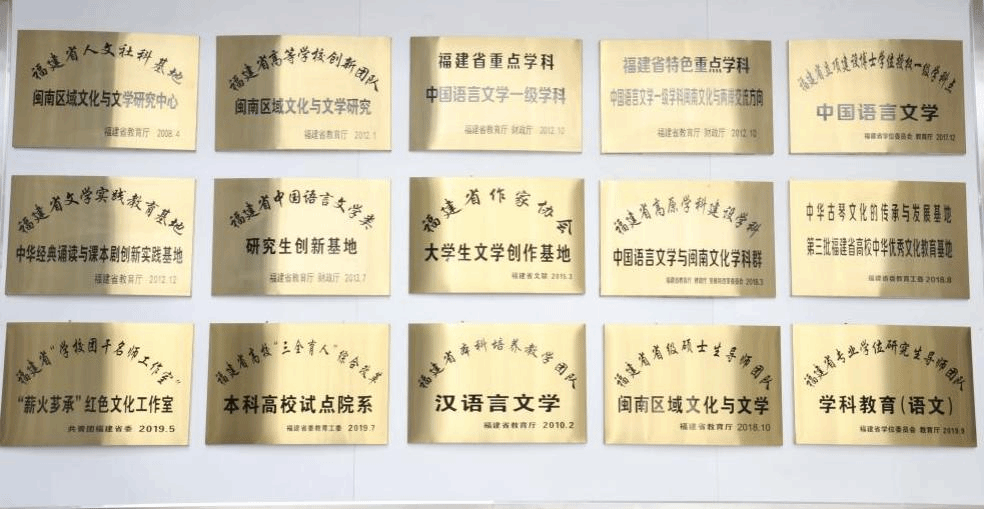 福建省人文社科基地
闽南区域文化与文学研究中心
福建省教育厅 2008.4
福建省高等学校创新团队
闽南区域文化与文学研究
福建省教育厅 2012.1
福建省重点学科
中国语言文学一级学科
福建省教育厅 财政厅 2012.10
福建省特色重点学科
中国语言文学一级学科闽南文化与两岸交流方向
福建省教育厅 财政厅 2012.10
福建省立项建设博士学位授权一级学科点
中国语言文学
福建省学位委员会 教育厅 2017.12
福建省文学实践教育基地
中华经典诵读与课本剧创新实践基地
福建省教育厅 2012.12
福建省中国语言文学类
研究生创新基地
福建省教育厅 财政厅 2013.7
福建省作家协会
大学生文学创作基地
福建省文联 2015.3
福建省高原学科建设学科
中国语言文学与闽南文化学科群
福建省教育厅 财政厅 发展和改革委员会 2018.3
中华古琴文化的传承与发展基地
第三批福建省高校中华优秀文化教育基地
福建省委教育工委 2018.8
福建省“学校团干名师工作室”
“薪火芗承”红色文化工作室
共青团福建省委 2019.5
福建省高校“三全育人”综合改革
本科高校试点院系
福建省委教育工委 2019.7
福建省本科培养教学团队
汉语言文学
福建省教育厅 2010.2
福建省省级硕士生导师团队
闽南区域文化与文学
福建省教育厅 2018.10
福建省专业学位研究生导师团队
学科教育(语文)
福建省学位委员会 教育厅 2019.9